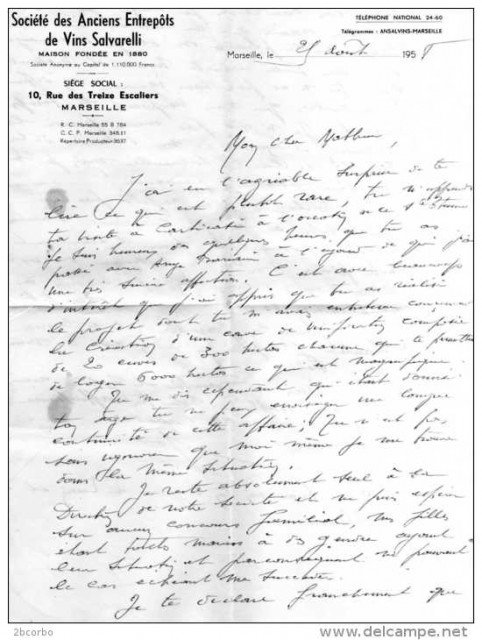 Société des Anciens Entrepôts
de Vins Salvarelli
MAISON FONDÉE EN 1880
Société Anonyme au Capital de 1.110.000 Francs
SIÈGE SOCIAL :
10, Rue des Treize Escaliers
MARSEILLE
R. C. Marseille 55 B 784
C. C. P. Marseille 348.11
Répertoire Producteur 3037
TÉLÉPHONE NATIONAL 24-60
Télégrammes : ANSALVINS-MARSEILLE
Marseille, le 25 août 1958
Mon Cher
J'ai eu l'agréable surprise de te
lire ce qui est plutôt rare, tu m'apprends
ta visite à à l'
Je suis heureux des quelques heures que tu as
passé avec à l'égard de qui j'ai
une très sincère affection. C'est avec beaucoup
d'intérêt que j'ai appris que tu as réalisé
le projet dont tu m'avais entretenu concernant
la création d'une cave de composée
de 20 cuves de 300 hectos chacune qui te permettra
de loger 6000 hectos ce qui est magnifique.
Tu me dis cependant qu'étant donné
ton âge tu ne peux envisager une longue
continuité de cette affaire; Tu n'es pas
sans ignorer que moi même je me trouve
dans la même situation.
Je reste absolument seul à la
Direction de notre société et ne puis espérer
sur aucun concours familial, mes filles
étant toutes mariées à des gendres ayant
leur situation et par conséquent ne pouvant
le cas échéant me succéder.
Je te déclare franchement que
2bcorbo
delcampe.net